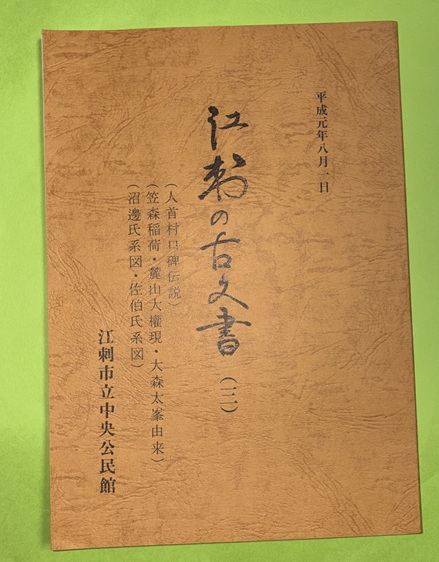 平成元年八月一日
江刺の古文書(三)
(人首村口碑伝説)
(笠森稲荷・麓山大権現・大森太峯由来)
(沼邊氏系図・佐伯氏系図)
江刺市立中央公民館